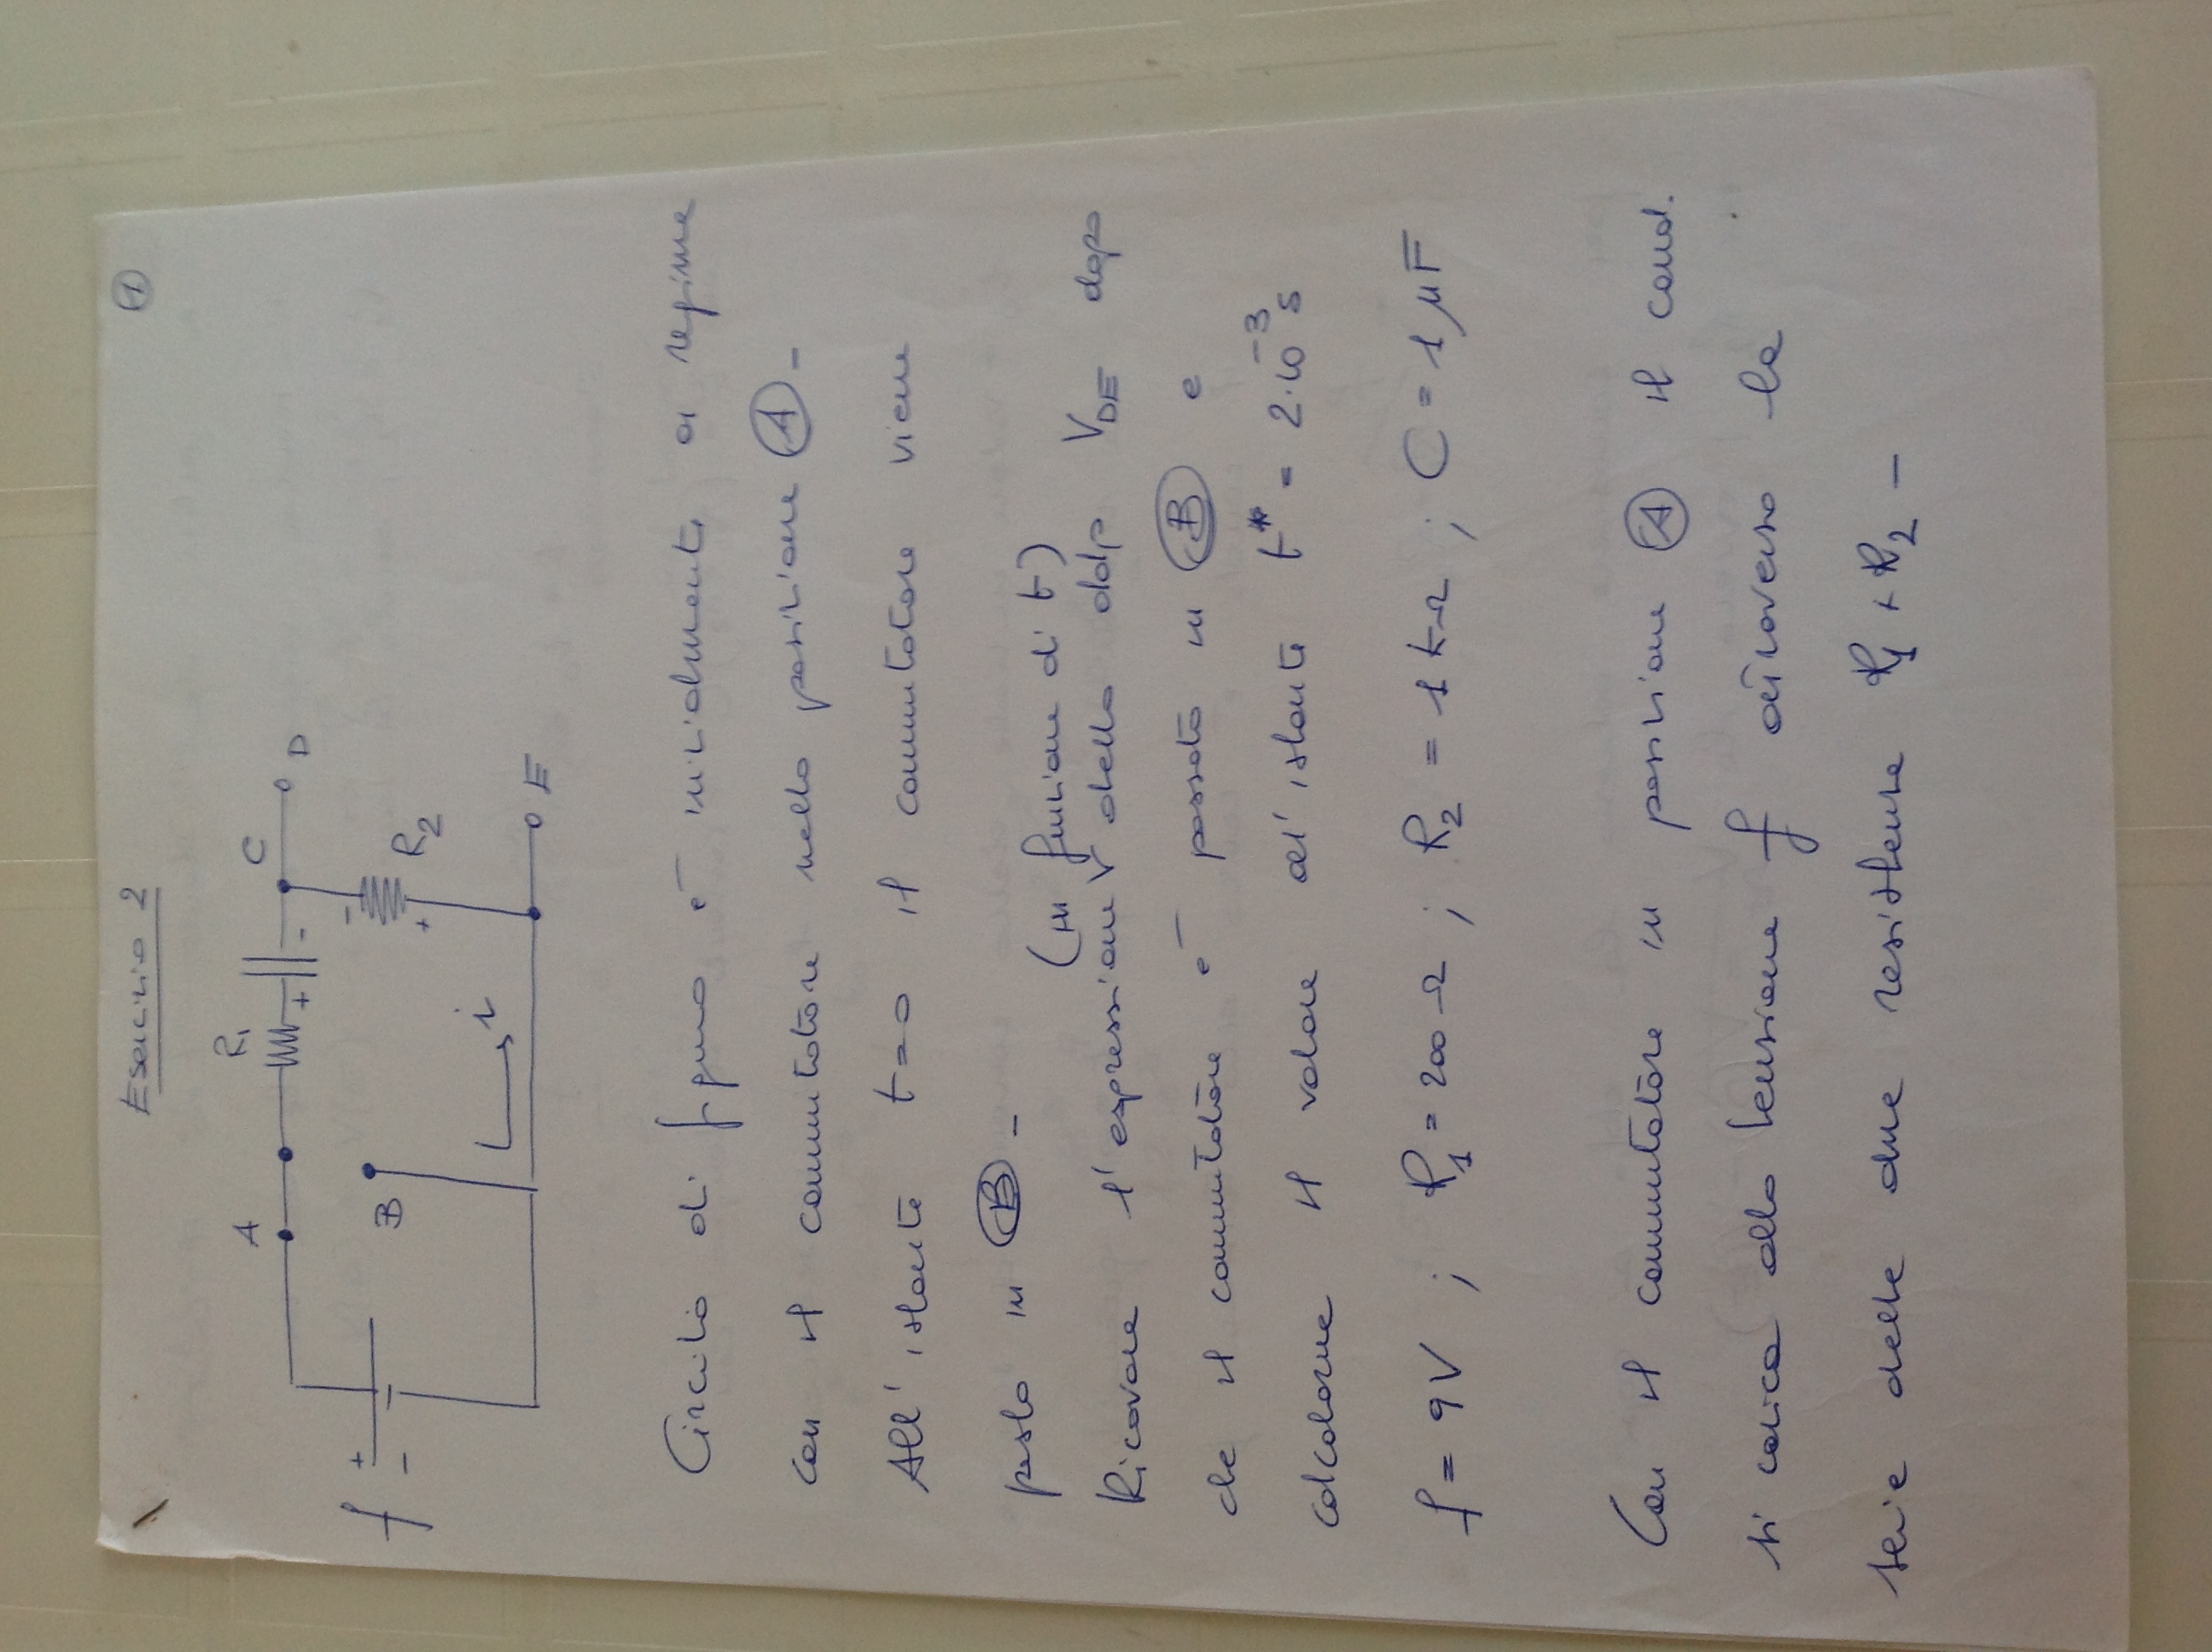 Esercizio 2
1
A
R₁
C
D
+ -
f
+
-
B
-
+
R₂
i
E
Circuito di figura è inizialmente a regime
con il commutatore nella posizione A -
All' istante t=0 il commutatore viene
posto in B -
(in funzione di t)
Ricavare l'espressione V della ddp V_DE dopo
che il commutatore è passato in B e
calcolarne il valore all'istante t* = 2·10⁻³ s
f = 9V ; R₁ = 200 Ω ; R₂ = 1 kΩ ; C = 1 μF
Con il commutatore in posizione A il cond.
si carica alla tensione f attraverso la
serie delle due resistenze R₁ + R₂ -